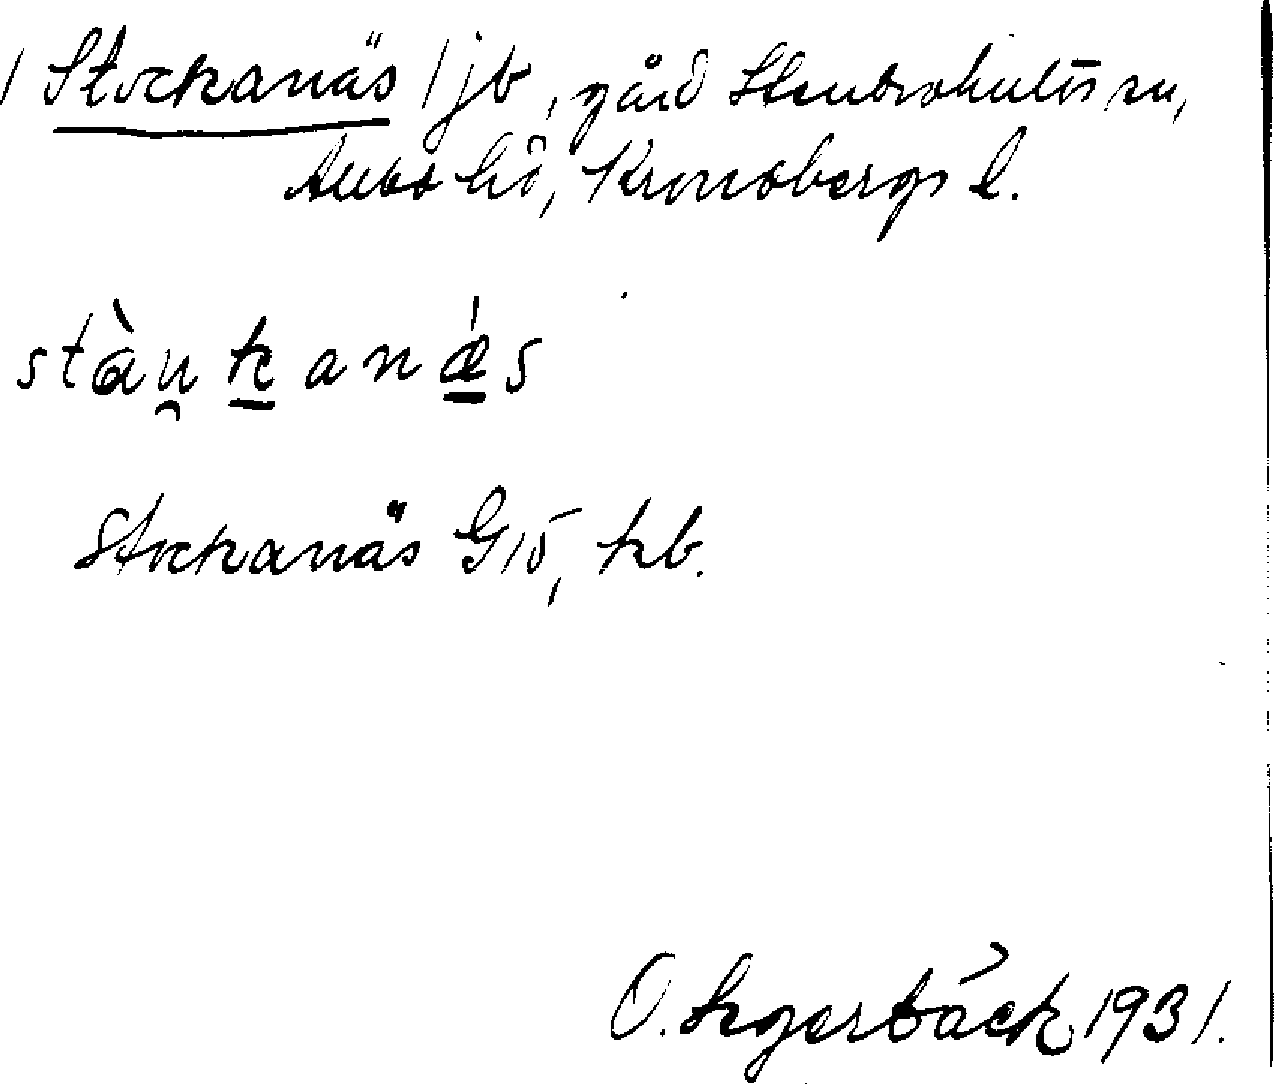 / Stockanäs / jb, gård Stenbrohults sn,
Allbo hd, Kronobergs l.
stàu̯kanǽs
Stockanäs G15, kb.
O. Segerbäck 1931.